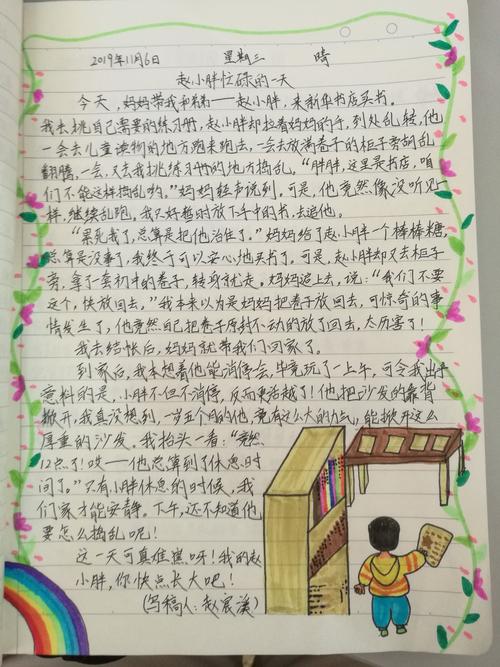 2019年11月6日 星期三 晴
赵小胖忙碌的一天
今天，妈妈带我和弟弟——赵小胖，来新华书店买书。
我去挑自己需要的练习册，赵小胖却拉着妈妈的手，到处乱转，他
一会去儿童读物的地方跑来跑去，一会去放满卷子的柜子旁胡乱
翻腾，一会，又去我挑练习册的地方捣乱。“胖胖，这里是书店，咱
们不能这样捣乱哟。”妈妈轻声说到，可是，他竟然像没听见一
样，继续乱跑。我只好暂时放下手中的书，去追他。
“累死我了，总算是把他治住了。”妈妈给了赵小胖一个棒棒糖，
总算是没事了，我终于可以安心地买书了。可是，赵小胖却又去柜子
旁，拿了一套初中的卷子，转身就走。妈妈追上去，说：“我们不要
这个，快放回去。”我本来以为是妈妈把卷子放回去，可惊奇的事
情发生了，他竟然自己把卷子原封不动的放了回去，太厉害了！
我去结帐后，妈妈就带我们回家了。
到家后，我本想着他能消停会，毕竟玩了一上午，可令我出乎
意料的是，小胖不但不消停，反而更活越了！他把沙发的靠背
掀开，我真没想到，一岁五个月的他，竟有这么大的力气，能掀开这么
厚重的沙发。我抬头一看：“竟然
12点了！哎——他总算到了休息时
间了。”只有小胖休息的时候，我
们家才能安静。下午，还不知道他
要怎么捣乱呢！
这一天可真难熬呀！我的赵
小胖，你快点长大吧！
（写稿人：赵宸溪）